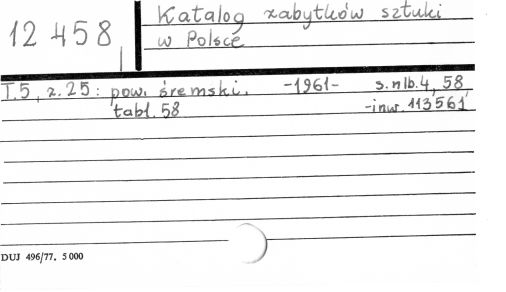 12 458
Katalog zabytków sztuki
w Polsce
T.5, z.25: pow. śremski. -1961- s.nlb.4, 58,
tabl. 58 -inw. 113561
DUJ 496/77. 5 000